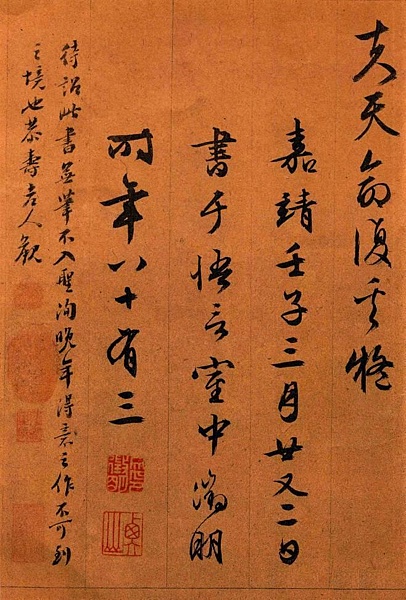 夫天命復奚疑
嘉靖壬子三月廿又二日
書于悟言室中徵明
时年八十有三
待詔此書無筆不入聖洵晚年得意之作不可到
之境也恭壽老人觀